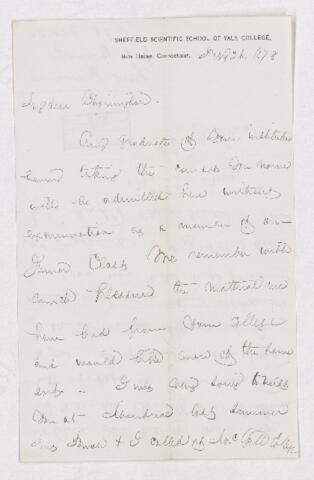 SHEFFIELD SCIENTIFIC SCHOOL OF YALE COLLEGE.
New Haven, Connecticut, 1878
My dear
Any graduate of your institution
having taking the course you name
will be admitted here without
examination as a member of our
Junior Class. We remember with
much pleasure the material we
have had from your College
and would like more of the same
sort. I was very sorry to miss
you at last summer
& I called at